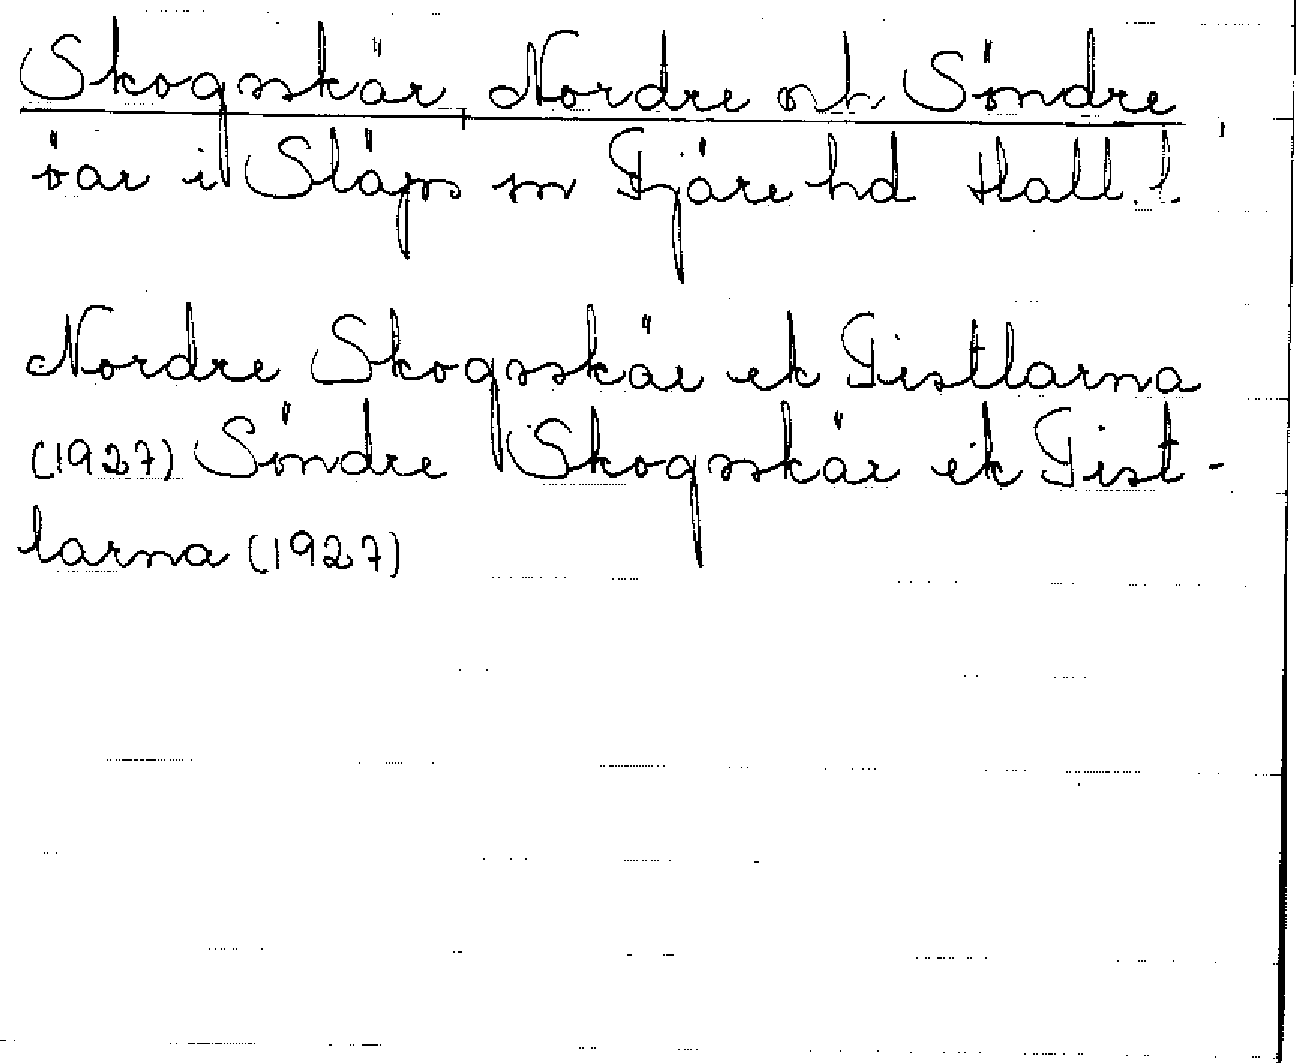 Skogsskär, Nordre och Söndre,
öar i Släps sn Fjäre hd Hall. l.
Nordre Skogsskär ek Tistlarna
(1927) Söndre Skogsskär ek Tist-
larna (1927)